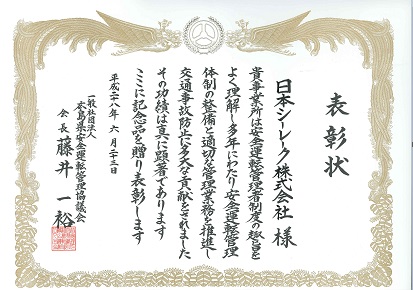 表彰状
日本シーレーク株式会社 様
貴事業所は安全運転管理者制度の趣旨を
よく理解し多年にわたり安全運転管理
体制の整備と適切な管理業務を推進し
交通事故防止に多大な貢献をされました
その功績は真に顕著であります
ここに記念品を贈り表彰します
平成二八年 六月二十三日
一般社団法人
広島県安全運転管理協議会
会長 藤井 一裕